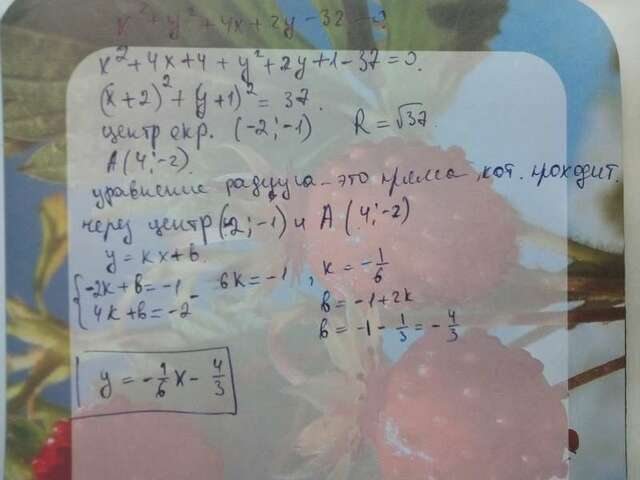 x² + y² + 4x + 2y - 32 = 0
x² + 4x + 4 + y² + 2y + 1 - 37 = 0.
(x+2)² + (y+1)² = 37.
центр окр. (-2; -1) R = √37.
A (4; -2).
уравнение радиуса - это прямая, кот. проходит.
через центр (-2; -1) и A (4; -2)
y = kx + b.
{ -2k + b = -1
4k + b = -2 - 6k = -1, k = -1/6
b = -1 + 2k
b = -1 - 1/3 = -4/3
y = -1/6 x - 4/3